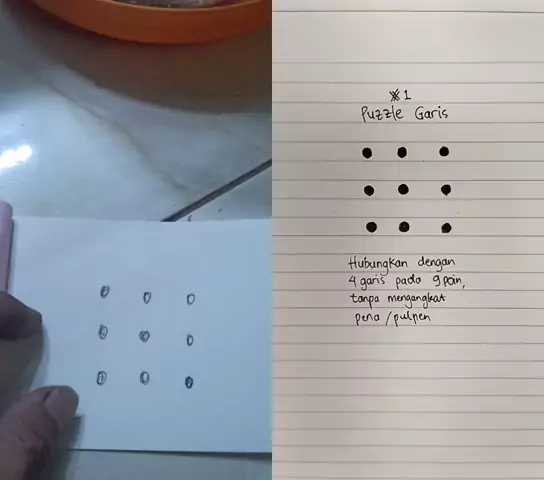 1
Puzzle Garis
Hubungkan dengan
4 garis pada 9 poin,
tanpa mengangkat
pena / pulpen